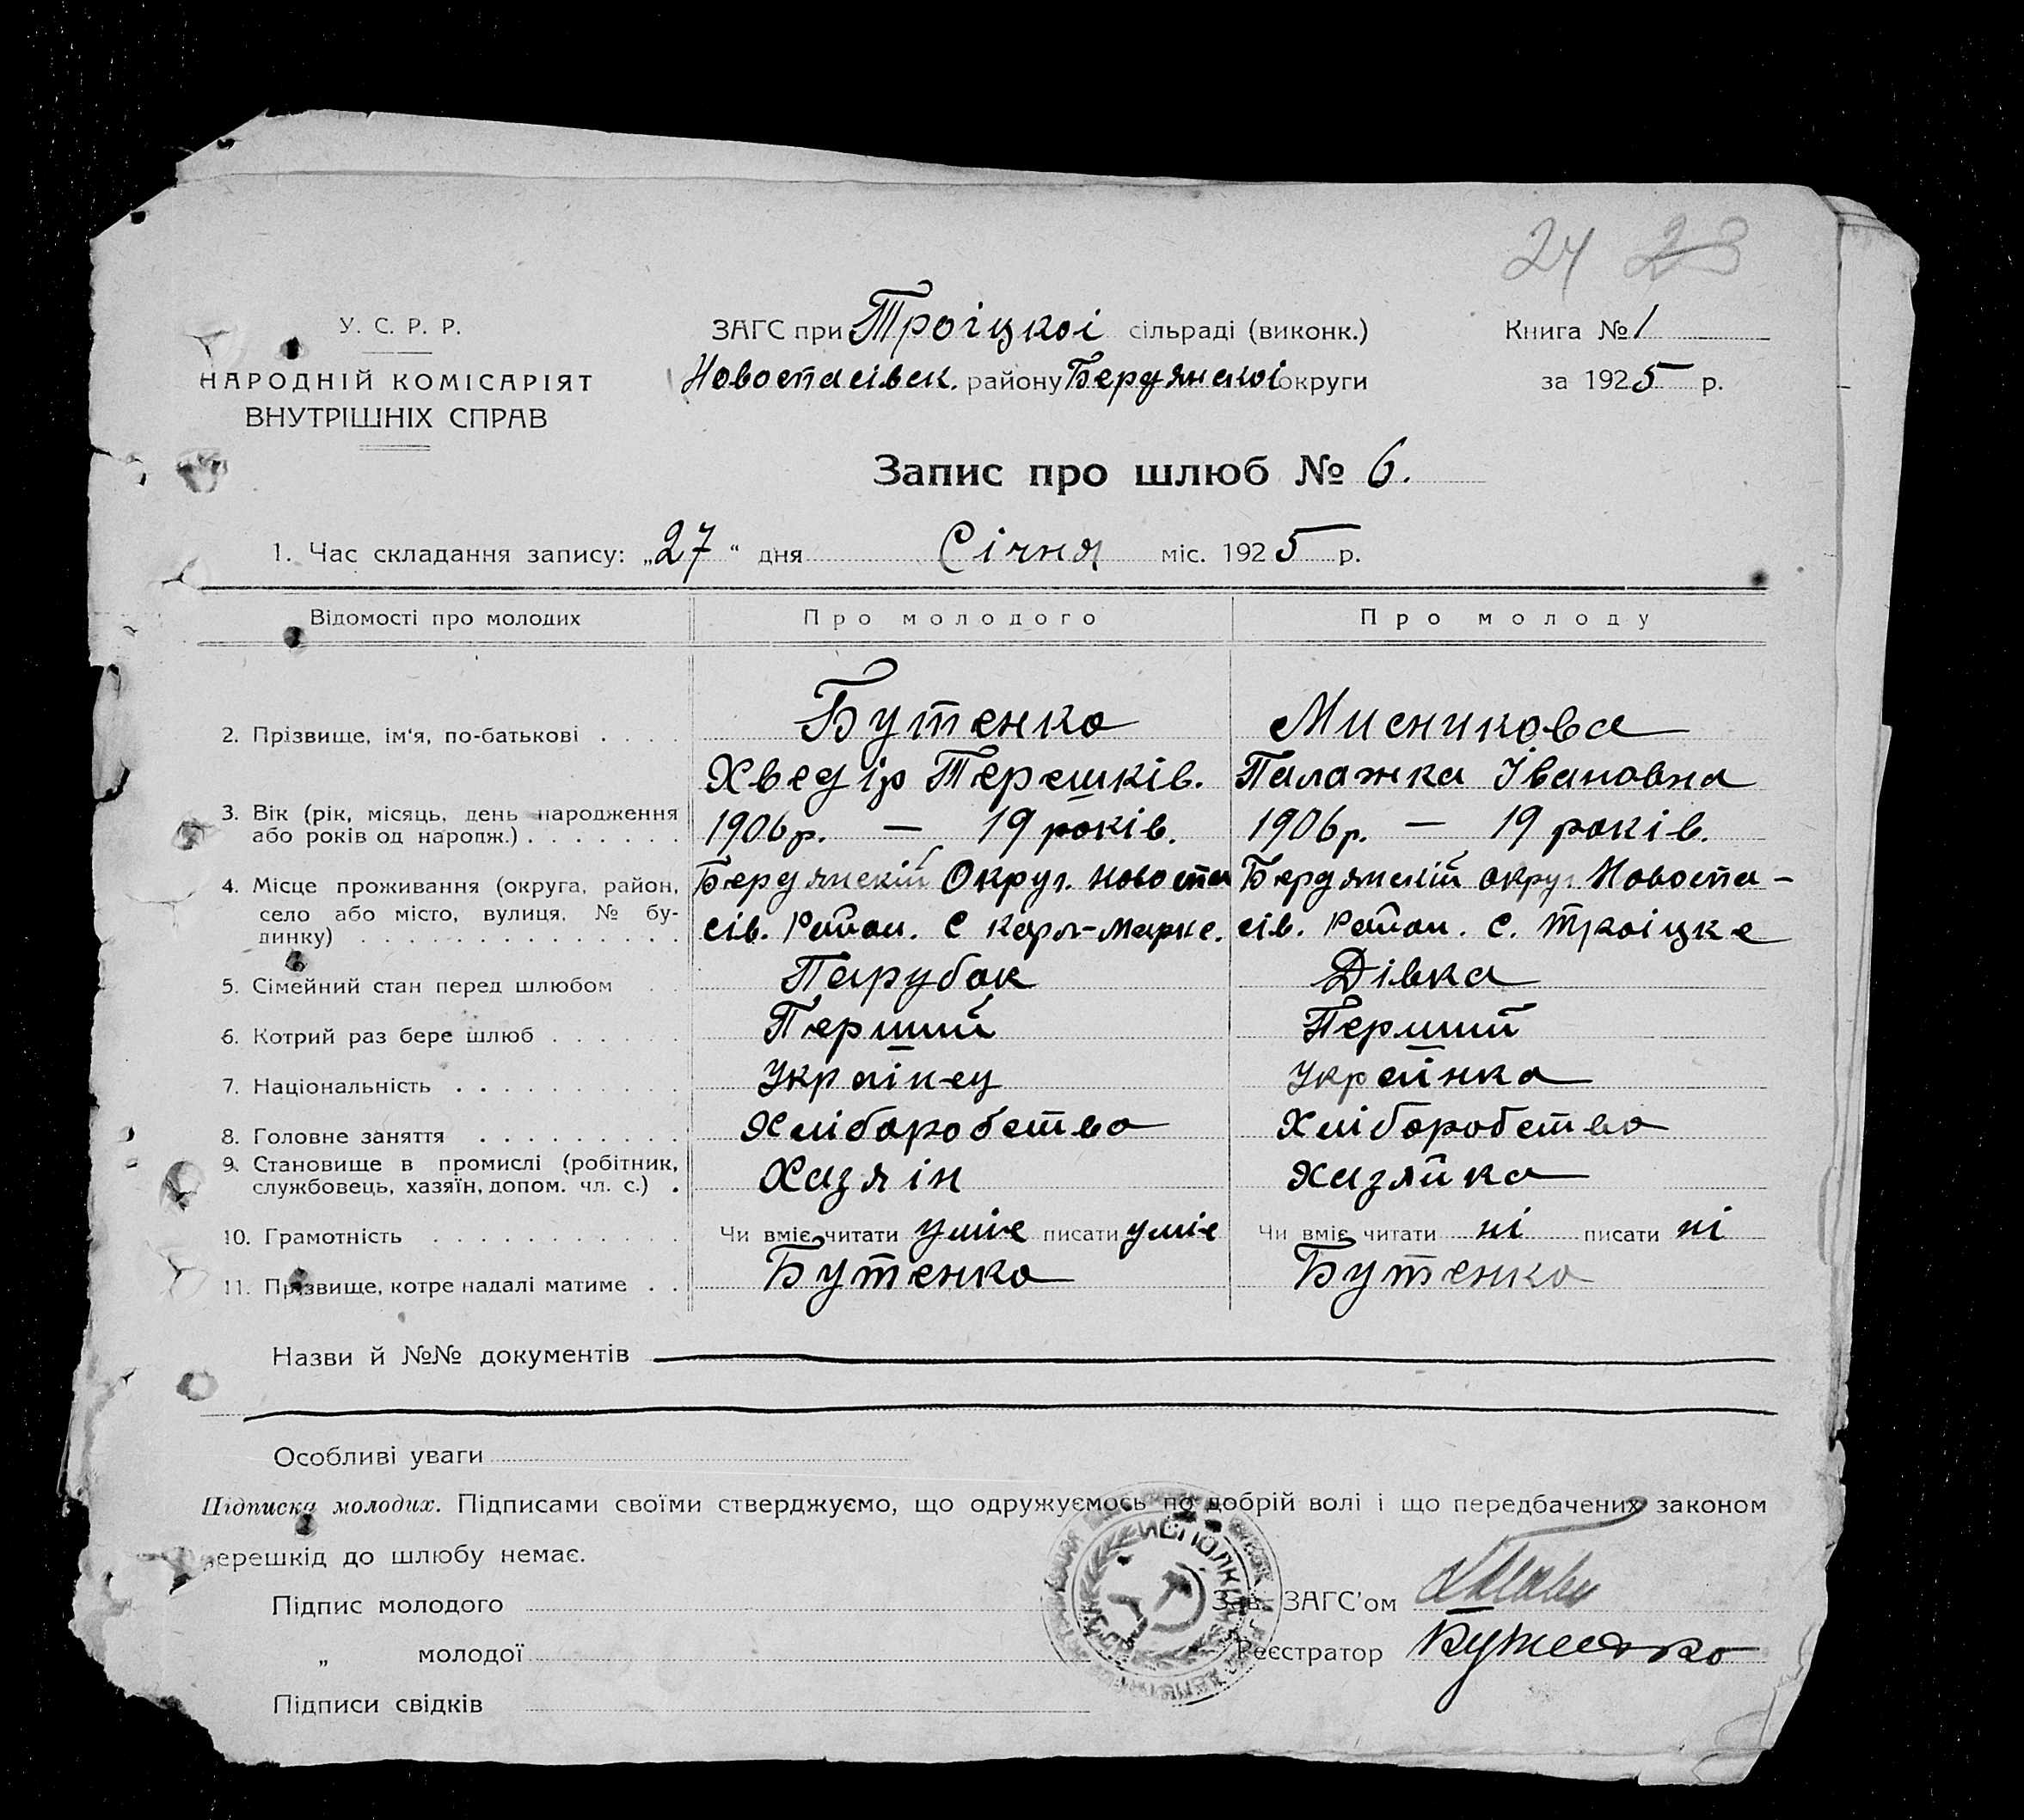 24 23
У. С. Р. Р.
НАРОДНІЙ КОМІСАРІЯТ
ВНУТРІШНІХ СПРАВ
ЗАГС при Троіцкоі сільраді (виконк.)
Новоспасівск. району Бердянскоі округи
Книга № 1
за 1925 р.
Запис про шлюб № 6.
1. Час складання запису: „27“ дня Січня міс. 1925 р.
Відомості про молодих Про молодого Про молоду
2. Прізвище, ім'я, по-батькові . . . . Бутенко Мисникова
Хведір Терешків. Палажка Івановна
3. Вік (рік, місяць, день народження
або років од народж.) . . . . . . . 1906р. — 19 років. 1906р. — 19 років.
4. Місце проживання (округа, район,
село або місто, вулиця, № бу-
динку) . . . . . . . . . . . . . . .
Бердянскій Округ. Новоспа
сів. Район. С Карл-Маркс.
Бердянскій округ Новоспа-
сів. Район. с. Троіцке
5. Сімейний стан перед шлюбом . . Парубок Дівка
6. Котрий раз бере шлюб . . . . . . Перший Перший
7. Національність . . . . . . . . . Українец Українка
8. Головне заняття . . . . . . . . . Хліборобство Хліборобство
9. Становище в промислі (робітник,
службовець, хазяїн, допом. чл. с.) . Хазяін Хазяйка
10. Грамотність . . . . . . . . . . . Чи вміє читати уміє писати уміє Чи вміє читати ні писати ні
11. Прізвище, котре надалі матиме . . Бутенко Бутенко
Назви й №№ документів
Особливі уваги
Підписка молодих. Підписами своїми стверджуємо, що одружуємось по добрій волі і що передбачених законом
перешкід до шлюбу немає.
Підпис молодого
„ молодої
Підписи свідків
Зав. ЗАГС'ом
Реєстратор Бутенко
ИСПОЛКОМ